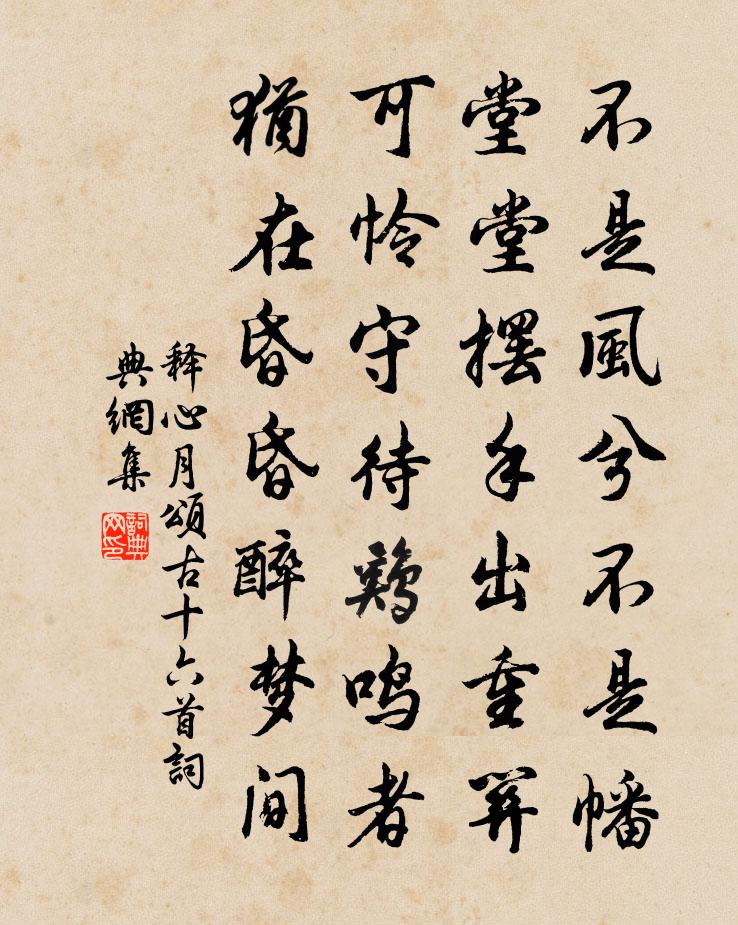 不是風兮不是幡
堂堂擺手出重關
可憐守待鷄鳴者
猶在昏昏醉梦间
释心月頌古十六首詞
典網集
詞典
网印